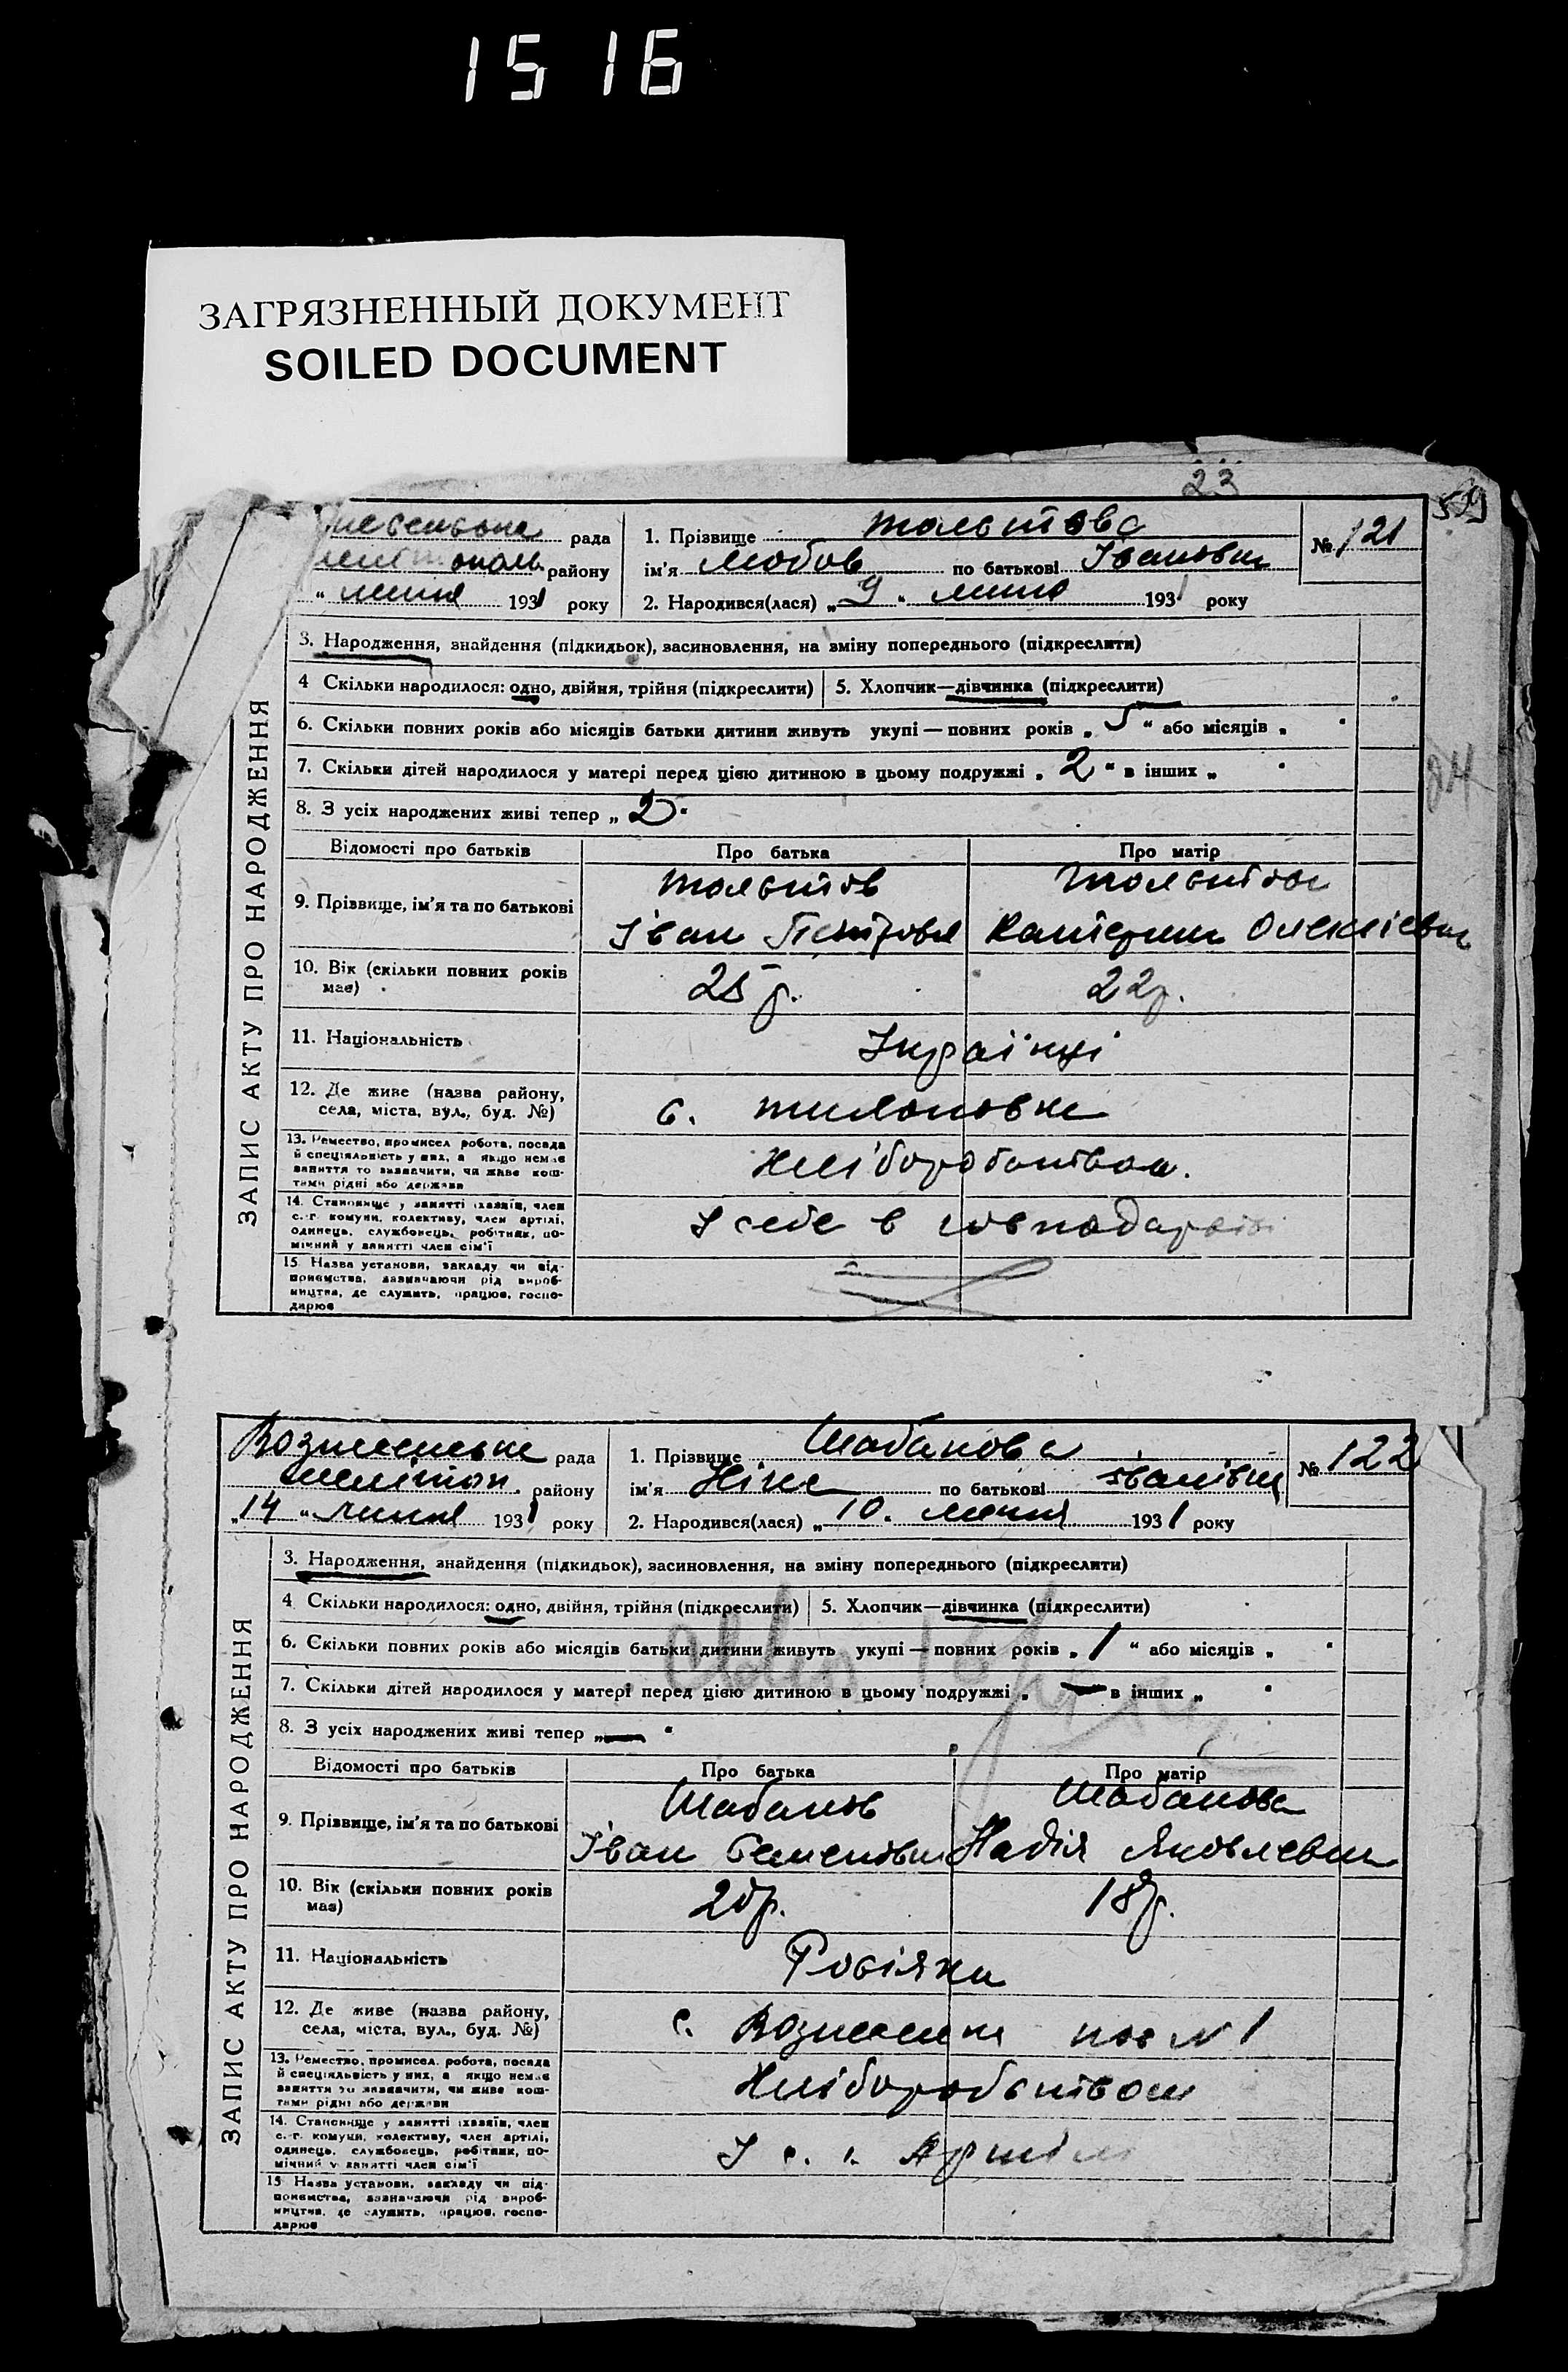 1516
ЗАГРЯЗНЕННЫЙ ДОКУМЕНТ
SOILED DOCUMENT
23
рада
району
" липня 1931 року
1. Прізвище
№ 121
ім'я Любов по батькові Івановна
2. Народився(лася) „ 9 " липня 1931 року
ЗАПИС АКТУ ПРО НАРОДЖЕННЯ
3. Народження, знайдення (підкидьок), засиновлення, на зміну попереднього (підкреслити)
4 Скільки народилося: одно, двійня, трійня (підкреслити) 5. Хлопчик—дівчинка (підкреслити)
6. Скільки повних років або місяців батьки дитини живуть укупі — повних років „ 5 " або місяців „ "
7. Скільки дітей народилося у матері перед цією дитиною в цьому подружжі „ 2 " в інших „ "
8. З усіх народжених живі тепер „ 2 "
Відомості про батьків Про батька Про матір
9. Прізвище, ім'я та по батькові
Іван Петрович Катерина Олексієвна
10. Вік (скільки повних років має) 25 р. 22 р.
11. Національність Українці
12. Де живе (назва району,
села, міста, вул., буд. №) с.
13. Ремество, промисел робота, посада
й спеціяльність у них, а якщо немає
заняття то визначити, чи живе кош-
тами рідні або держави
Хліборобством.
14. Становище у занятті (хазяїн, член
с.-г. комуни, колективу, член артілі,
одинець, службовець, робітник, по-
мічний у занятті член сім'ї
У себе в господарстві
15 Назва установи, закладу чи під-
приємства, зазначаючи рід вироб-
ництва, де служить, працює, госпо-
дарює
Вознесенська рада
Мелітоп. району
„ 14 " липня 1931 року
1. Прізвище Шабанова
№ 122
ім'я Ніна по батькові Іванівна
2. Народився(лася) „ 10 " липня 1931 року
ЗАПИС АКТУ ПРО НАРОДЖЕННЯ
3. Народження, знайдення (підкидьок), засиновлення, на зміну попереднього (підкреслити)
4 Скільки народилося: одно, двійня, трійня (підкреслити) 5. Хлопчик—дівчинка (підкреслити)
6. Скільки повних років або місяців батьки дитини живуть укупі — повних років „ 1 " або місяців „ "
7. Скільки дітей народилося у матері перед цією дитиною в цьому подружжі „ — в інших „ "
8. З усіх народжених живі тепер „ — "
Відомості про батьків Про батька Про матір
Шабанов Шабанова
9. Прізвище, ім'я та по батькові
Іван Семенович Надія Яковлевна
10. Вік (скільки повних років має) 20 р. 18 р.
11. Національність Росіяни
12. Де живе (назва району,
села, міста, вул., буд. №) с. Вознесенка № 1
13. Ремество, промисел, робота, посада
й спеціяльність у них, а якщо немає
заняття то зазначити, чи живе кош-
тами рідні або держави
Хліборобством
14. Становище у занятті (хазяїн, член
с.-г. комуни, колективу, член артілі,
одинець, службовець, робітник, по-
мічний у занятті член сім'ї
У с. г. Артілі
15 Назва установи, закладу чи під-
приємства, зазначаючи рід вироб-
ництва, де служить, працює, госпо-
дарює